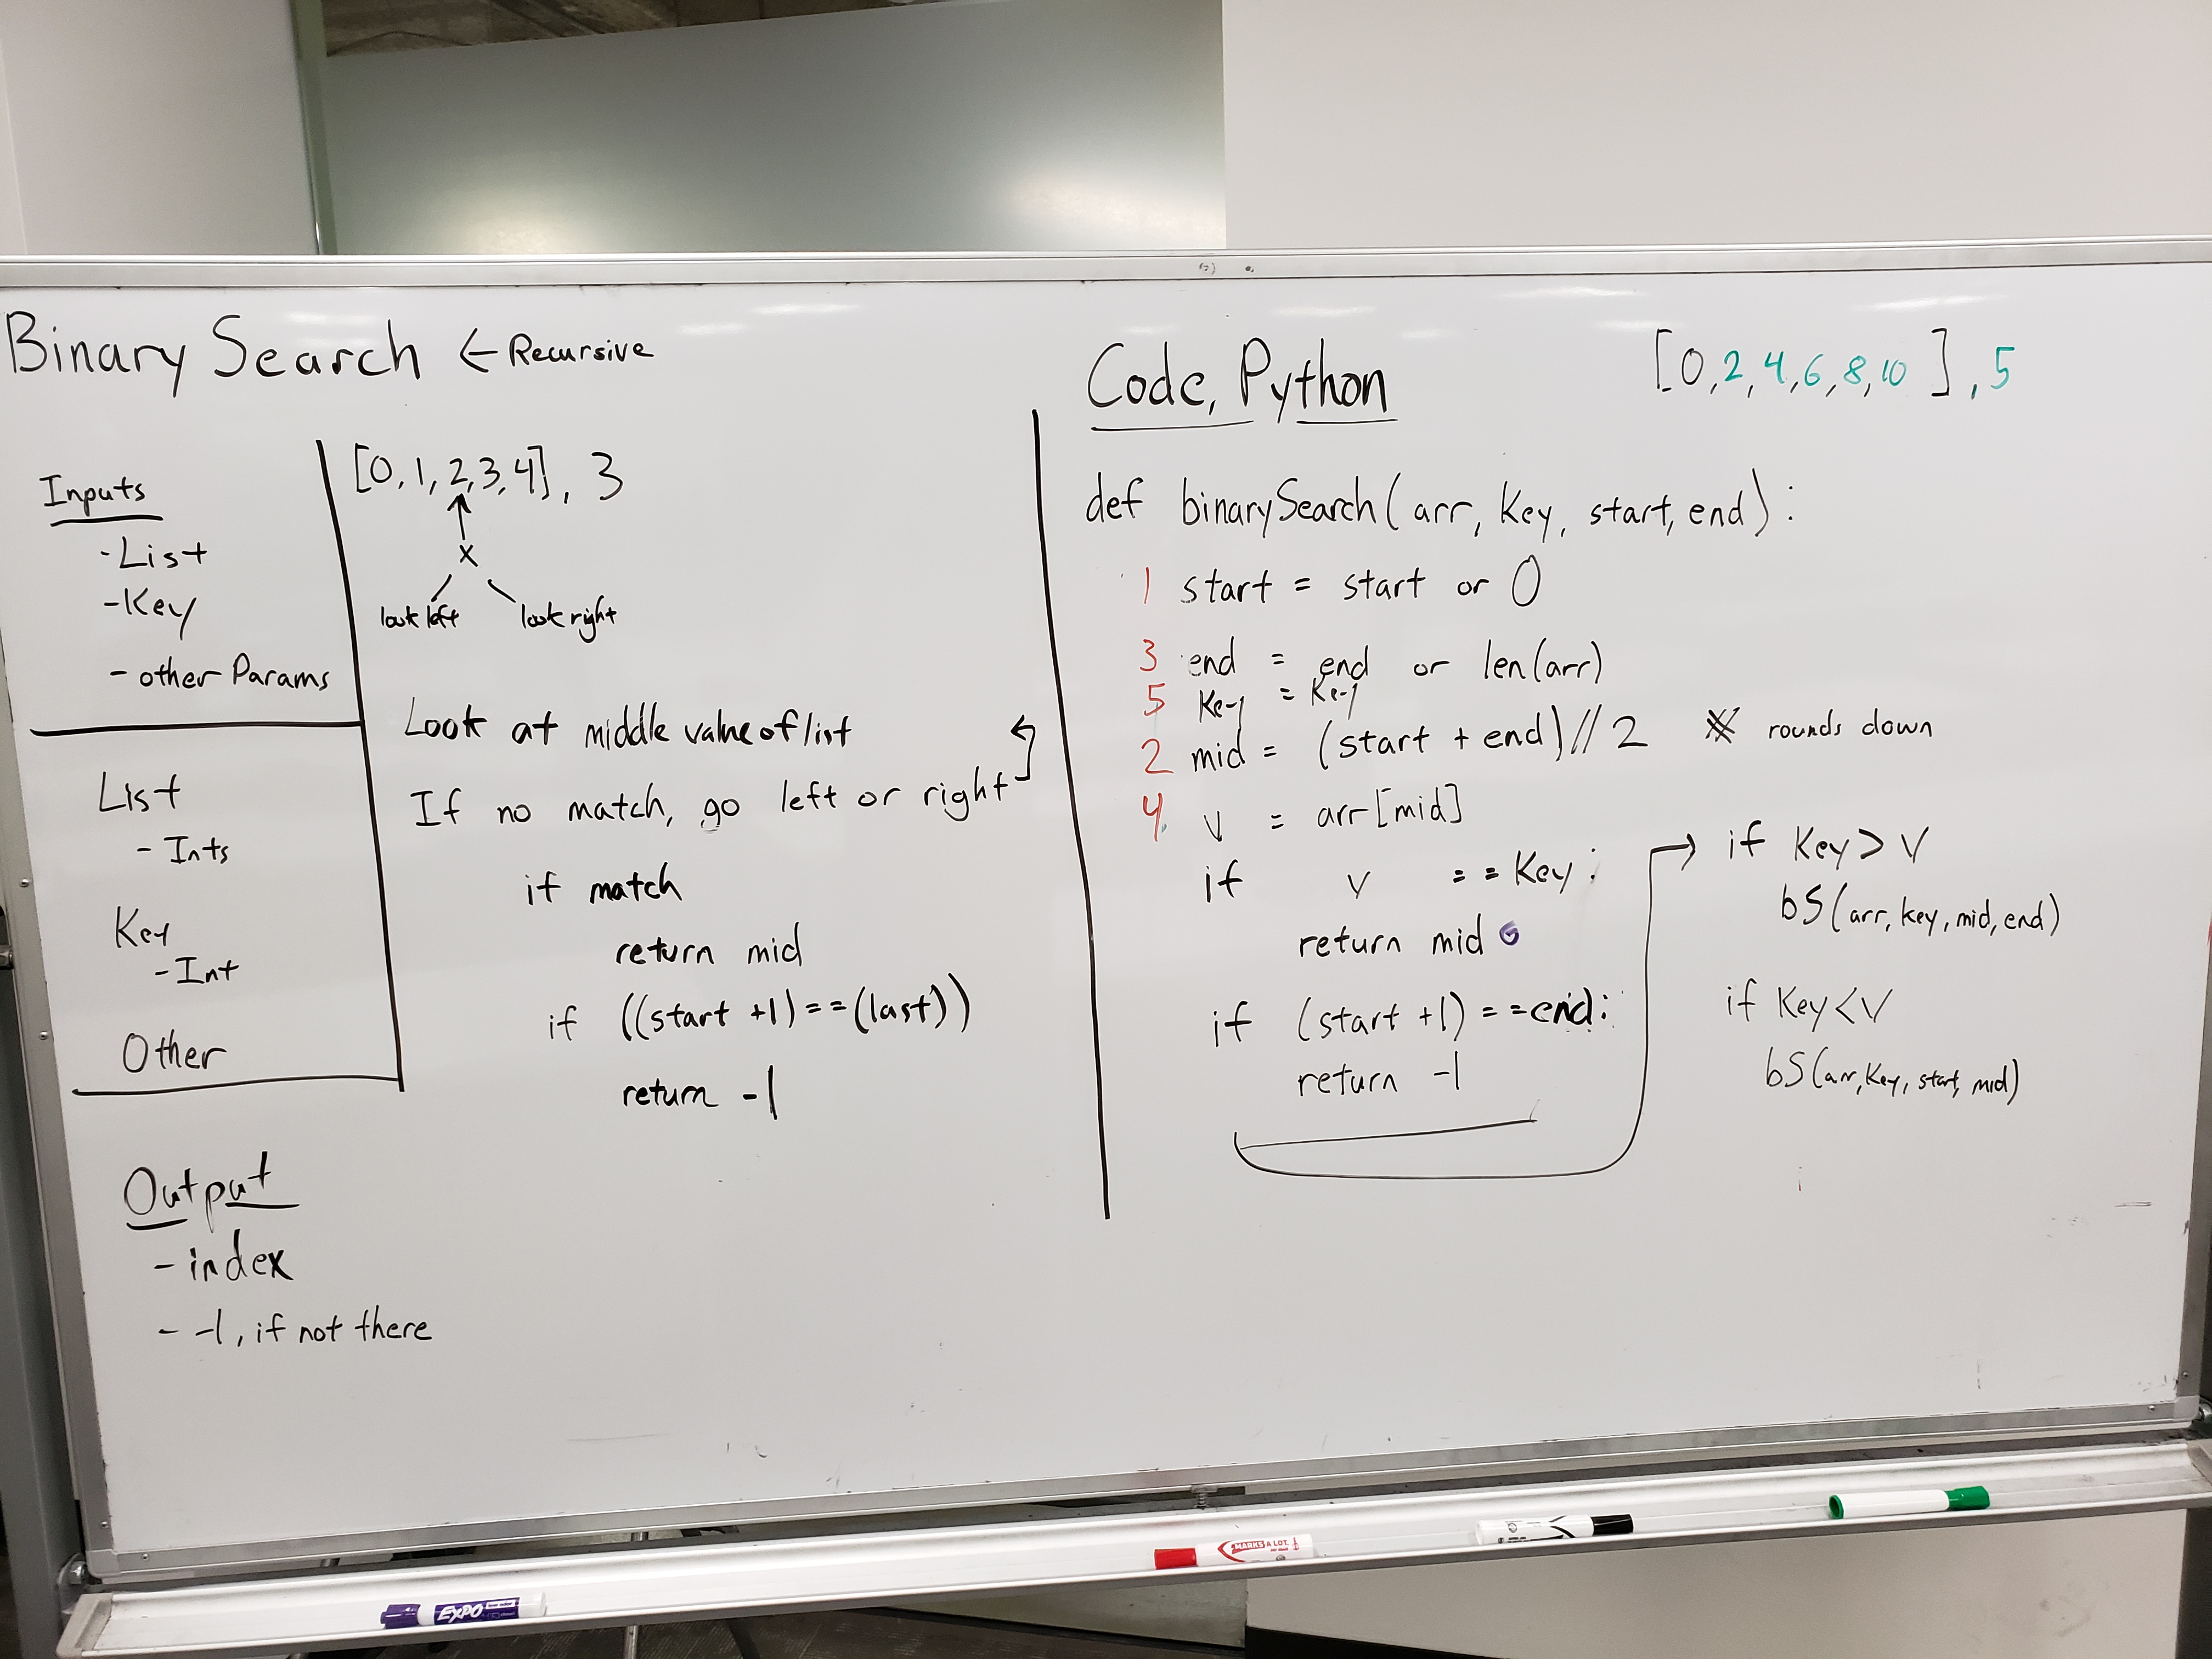 Binary Search ← Recursive
Inputs
- List
- Key
- other Params
List
- Ints
Key
- Int
Other
Output
- index
- -1, if not there
[0, 1, 2, 3, 4], 3
x
look left look right
Look at middle value of list
If no match, go left or right
if match
return mid
if ((start +1) == (last))
return -1
Code, Python
[0, 2, 4, 6, 8, 10], 5
def binarySearch(arr, Key, start, end):
1 start = start or 0
3 end = end or len(arr)
5 Key = Key
2 mid = (start + end)//2 rounds down
4 v = arr[mid]
if v == Key:
return mid
if (start +1) == end:
return -1
→ if Key > V
bS(arr, key, mid, end)
if Key < V
bS(arr, Key, start, mid)
EXPO
MARKS A LOT